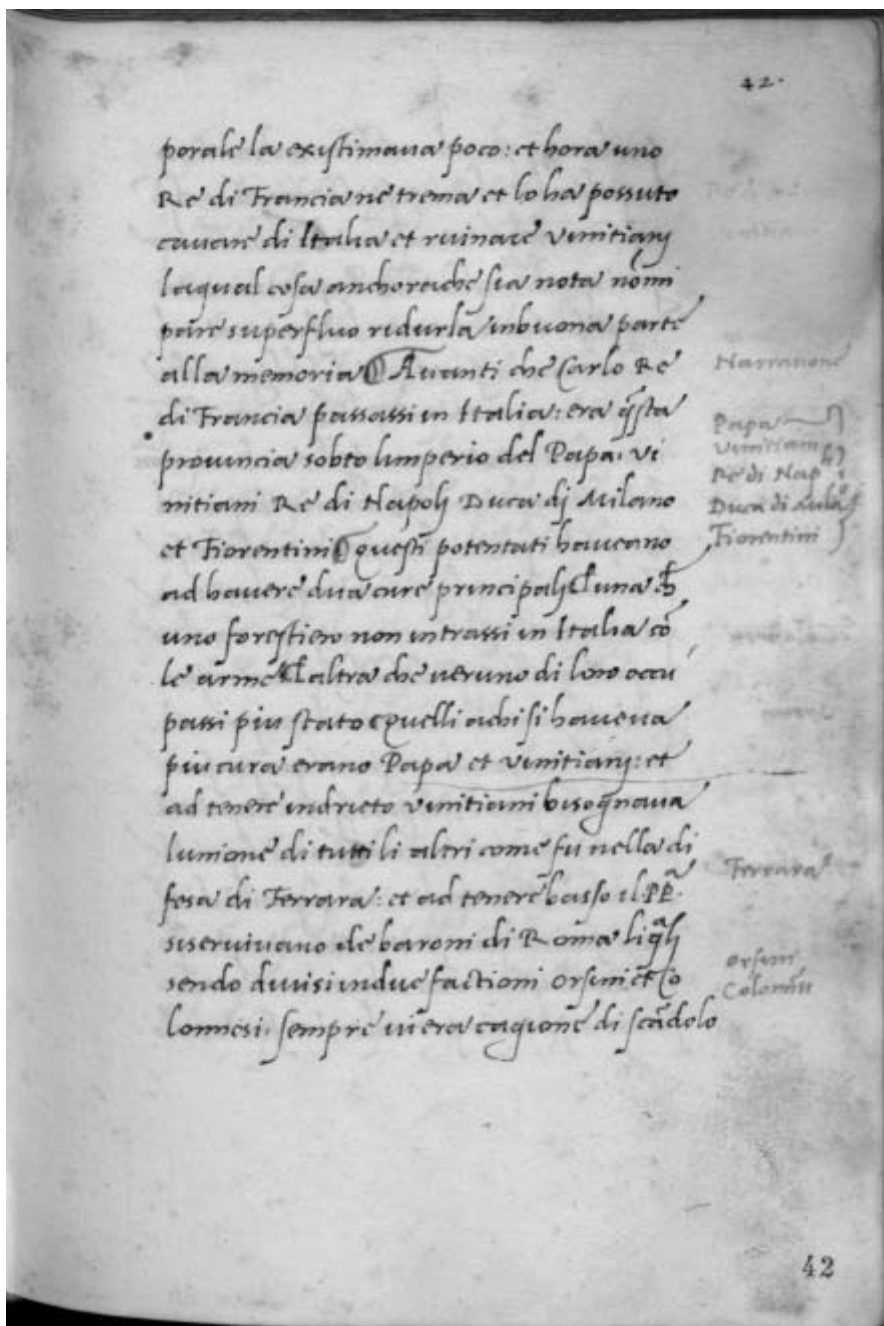 42.
porale la existimava poco: et hora uno
Re di Francia ne trema et lo ha possuto
cavare di Italia et ruinare vinitianj
laqual cosa anchorache sia nota nōmi
pare superfluo ridurla inbuona parte
alla memoria Avanti che Carlo Re
di Francia passassi in Italia: era q̄sta
provincia sobto limperio del Papa. vi
nitiani Re di Napolj Duca dj Milano
et Fiorentini questi potentati haveano
ad havere dua cure principalj luna ch̄
uno forestiero non intrassi in Italia cō
le arme laltra che veruno di loro occu
passi piu stato Quelli achi si haveva
piu cura erano Papa et vinitianj: et
ad tenere indrieto vinitiani bisognava
lunione di tutti li altri come fu nella di
fesa di Ferrara: et ad tenere basso il PP.
siservivano de baroni di Roma liq̄lj
sendo divisi indue factioni Orsini et Co
lonnesi. sempre vi era cagione di scādolo
Narratione
Papa
vinitiani
Re di Nap
Duca di
Fiorentini
Ferrara
Orsini
Colonnesi
42